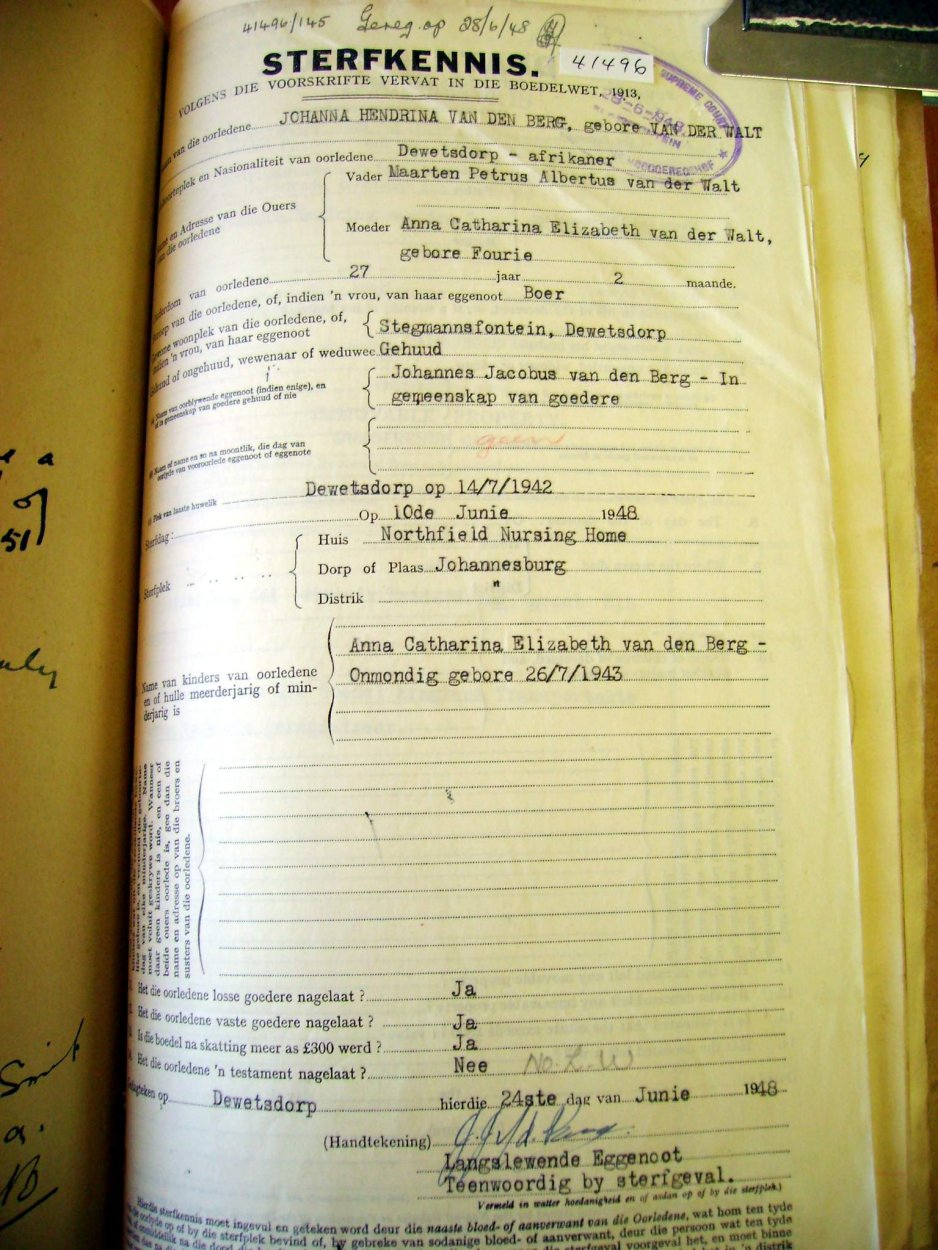 41496/145 Gereg. op 28/6/48
STERFKENNIS. 41496
VOLGENS DIE VOORSKRIFTE VERVAT IN DIE BOEDELWET, 1913,
SUPREME COURT
-6-1948
HOOGGEREGSHOF
van die oorledene JOHANNA HENDRINA VAN DEN BERG, gebore VAN DER WALT
en Nasionaliteit van oorledene Dewetsdorp - afrikaner
en Adresse van die Ouers van die oorledene
Vader Maarten Petrus Albertus van der Walt
Moeder Anna Catharina Elizabeth van der Walt,
gebore Fourie
van oorledene 27 jaar 2 maande.
van die oorledene, of, indien 'n vrou, van haar eggenoot Boer
woonplek van die oorledene, of,
indien 'n vrou, van haar eggenoot
Stegmannsfontein, Dewetsdorp
of ongehuud, wewenaar of weduwee Gehuud
Naam van oorblywende eggenoot (indien enige), en
of in gemeenskap van goedere gehuud of nie
Johannes Jacobus van den Berg - In
gemeenskap van goedere
Naam of name en so na moontlik, die dag van
oorlyde van vooroorlede eggenoot of eggenote
geen
Plek van laaste huwelik Dewetsdorp op 14/7/1942
Sterfdag: Op 10de Junie 1948
Sterfplek
Huis Northfield Nursing Home
Dorp of Plaas Johannesburg
Distrik "
Name van kinders van oorledene
en of hulle meerderjarig of min-
derjarig is
Anna Catharina Elizabeth van den Berg -
Onmondig gebore 26/7/1943
moet voluit geskrywe word. Wanneer
daar geen kinders is nie, en een of
beide ouers oorlede is, gee dan die
name en adresse op van die broers en
susters van die oorledene.
Het die oorledene losse goedere nagelaat ? Ja
Het die oorledene vaste goedere nagelaat ? Ja
Is die boedel na skatting meer as £300 werd ? Ja
Het die oorledene 'n testament nagelaat ? Nee No. L. W
Gedagteken op Dewetsdorp hierdie 24ste dag van Junie 1948
(Handtekening) J.J. v d Berg.
Langslewende Eggenoot
Teenwoordig by sterfgeval.
Vermeld in watter hoedanigheid en of aldan op of by die sterfplek.)
Hierdie sterfkennis moet ingevul en geteken word deur die naaste bloed- of aanverwant van die Oorledene, wat hom ten tyde
op of by die sterfplek bevind of, by gebreke van sodanige bloed- of aanverwant, deur die persoon wat ten tyde